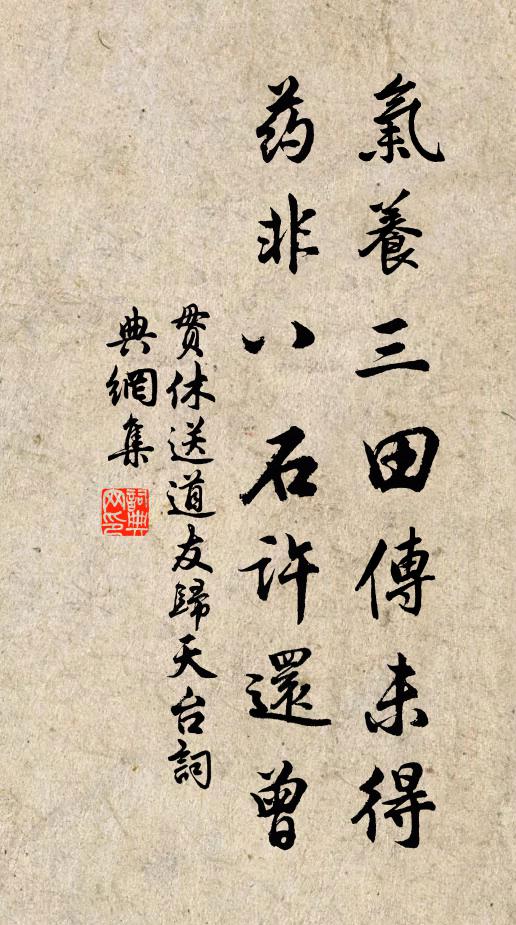 氣養三田傳未得
药非八石許還曾
貫休送道友歸天台詞
典網集
詞典网印